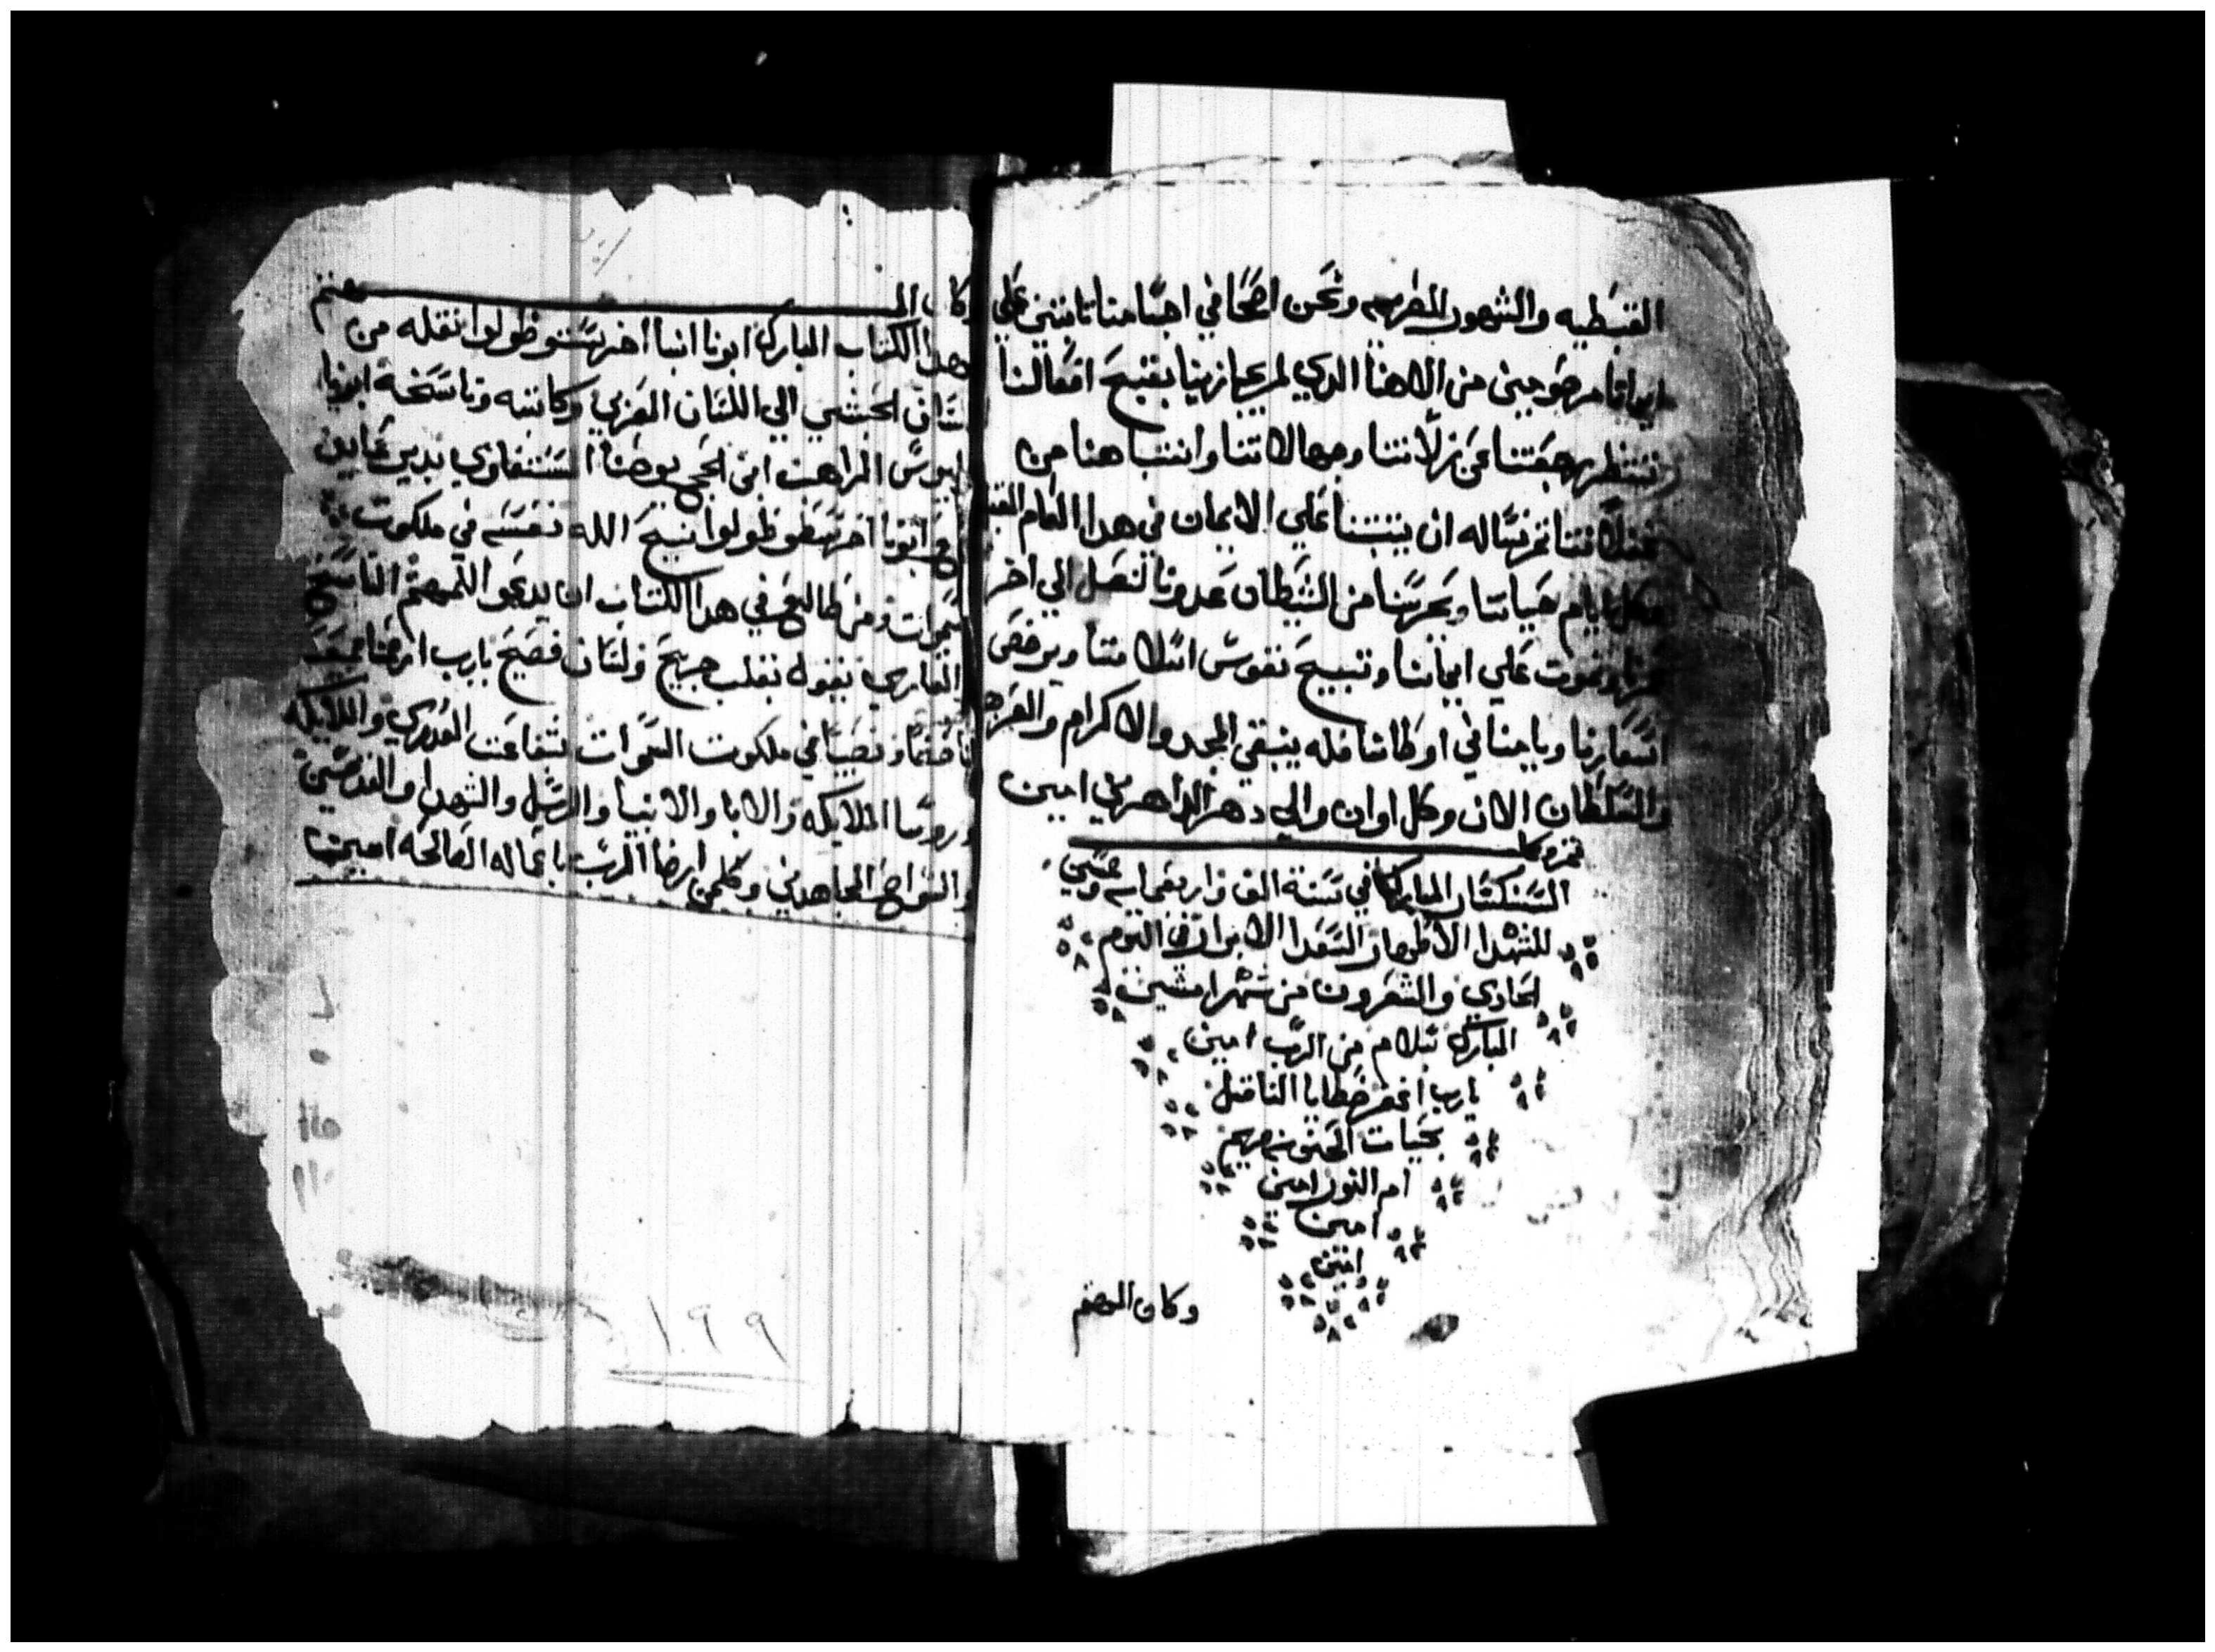 القبطيه والشهور المصريه ونحن اصحا في اجسامنا تابتين علي
ايماننا مرحومين من الاهنا الدي لم يجازينا بقبيح افعالنا
ننتظر رجعتنا عن زلاتنا وجهالاتنا وانتباهنا من
غفلاتنا ثم نساله ان يثبتنا علي الايمان في هدا العام المقبل
وكل ايام حياتنا ويحرسنا من الشيطان عدونا لنصل الي اخر
عمرنا ونموت علي ايماننا وتبيح نفوس اسلافنا ويرخص
اسعارنا ويامنا في اوطاننا فله ينبغي المجد والاكرام والعزه
والسلطان الان وكل اوان والي دهر الداهرين امين
تم وكمل
السنكسار المبارك في سنة الف واربعمايه
للشهدا الاطهار السعدا الابرار في اليوم
الحادي والعشرون من شهر امشير
المبارك بسلام من الرب امين
يارب اغفر خطايا الناقل
ام النور امين
امين
امين
وكان المهتم
وكان المهتم
هدا الكتاب المبارك ابونا انبا اخرسطوظولوا نقله من
لسان الحبشي الي اللسان العربي وكاتبه وناسخه ابونا
الراهب ابن
ابونا اخرسطوظولوا نيح الله نفسه في ملكوت
السموات ومن طالع في هدا الكتاب ان يدعوا للمهتم الناسخ
والقاري نيقول بقلب جريح ولسان فصيح يارب
لنا حضا ونصيبا في ملكوت السموات بشفاعت العدري والملايكه
وروسا الملايكه والابا والانبيا والرسل والشهدا والقديسين
والسواح المجاهدين وكلمن ارضا الرب باعماله الصالحه امين
١٠٩٩